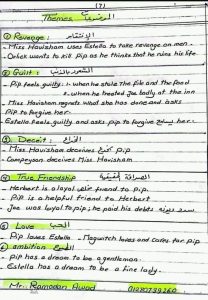 (7)
Themes الموضوعات
① Revenge : الإنتقام
- Miss Havisham uses Estella to take revenge on men.
- Orlick wants to kill Pip as he thinks that he ruins his life.
② Guilt : الشعور بالذنب
- Pip feels guilty : 1- when he stole the file and the food
2- when he treated Joe badly at the inn
- Miss Havisham regrets what she has done and asks
Pip to forgive her.
- Estella feels guilty and asks pip to forgive her يسامح
③ Deceit : الخداع
- Miss Havisham deceives pip
- Compeyson deceives Miss Havisham
④ True Friendship الصداقة الحقيقية
- Herbert is a loyal friend to pip.
- Pip is a helpful friend to Herbert
- Joe was loyal to pip; he paid his debts ديونه
⑤ Love الحب
- Pip loves Estella - Magwitch loves and cares for pip
⑥ ambition الطموح
- Pip has a dream to be a gentleman.
- Estella has a dream to be a fine lady.
Mr. Ramadan Awad